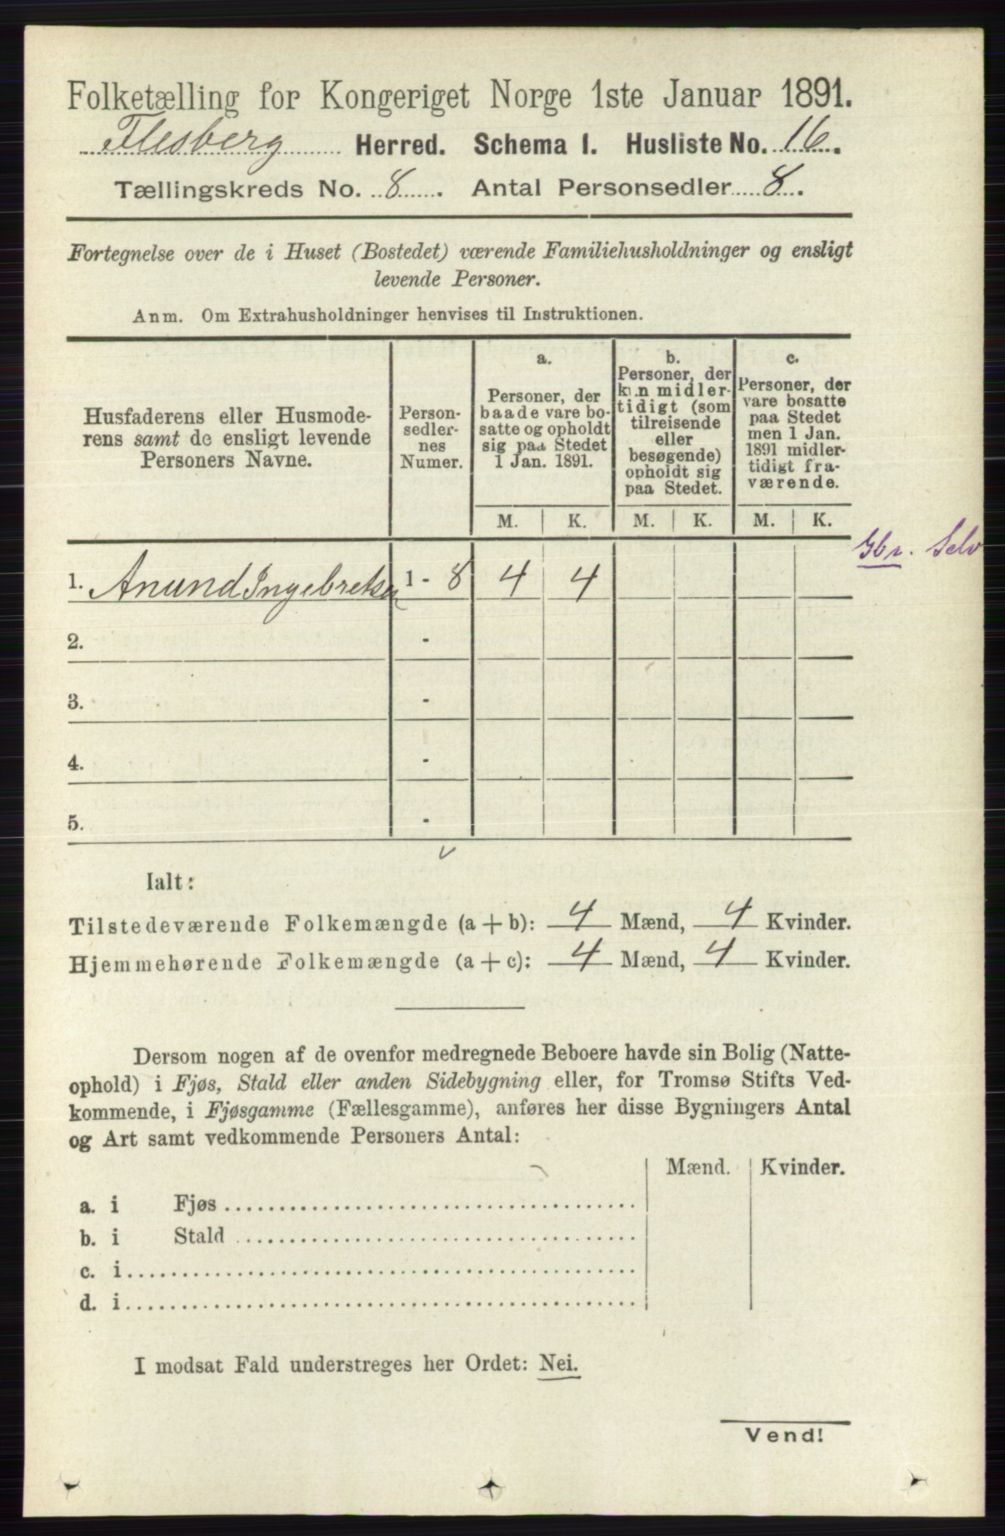 Folketælling for Kongeriget Norge 1ste Januar 1891.
Flesberg Herred. Schema 1. Husliste No. 16.
Tællingskreds No. 8. Antal Personsedler 8.
Fortegnelse over de i Huset (Bostedet) værende Familiehusholdninger og ensligt
levende Personer.
Anm. Om Extrahusholdninger henvises til Instruktionen.
Husfaderens eller Husmode-
rens samt de ensligt levende
Personers Navne.
Person-
sedler-
nes
Numer.
a.
Personer, der
baade vare bo-
satte og opholdt
sig paa Stedet
1 Jan. 1891.
b.
Personer, der
kun midler-
tidigt (som
tilreisende
eller
besøgende)
opholdt sig
paa Stedet.
c.
Personer, der
vare bosatte
paa Stedet
men 1 Jan.
1891 midler-
tidigt fra-
værende.
M. K. M. K. M. K.
Gbr. Selv
1. Anund Ingebretsen 1 - 8 4 4
2. -
3. -
4. -
5. -
Ialt:
Tilstedeværende Folkemængde (a + b): 4 Mænd, 4 Kvinder.
Hjemmehørende Folkemængde (a + c): 4 Mænd, 4 Kvinder.
Dersom nogen af de ovenfor medregnede Beboere havde sin Bolig (Natte-
ophold) i Fjøs, Stald eller anden Sidebygning eller, for Tromsø Stifts Ved-
kommende, i Fjøsgamme (Fællesgamme), anføres her disse Bygningers Antal
og Art samt vedkommende Personers Antal:
Mænd. Kvinder.
a. i Fjøs
b. i Stald
c. i
d. i
I modsat Fald understreges her Ordet: Nei.
Vend!